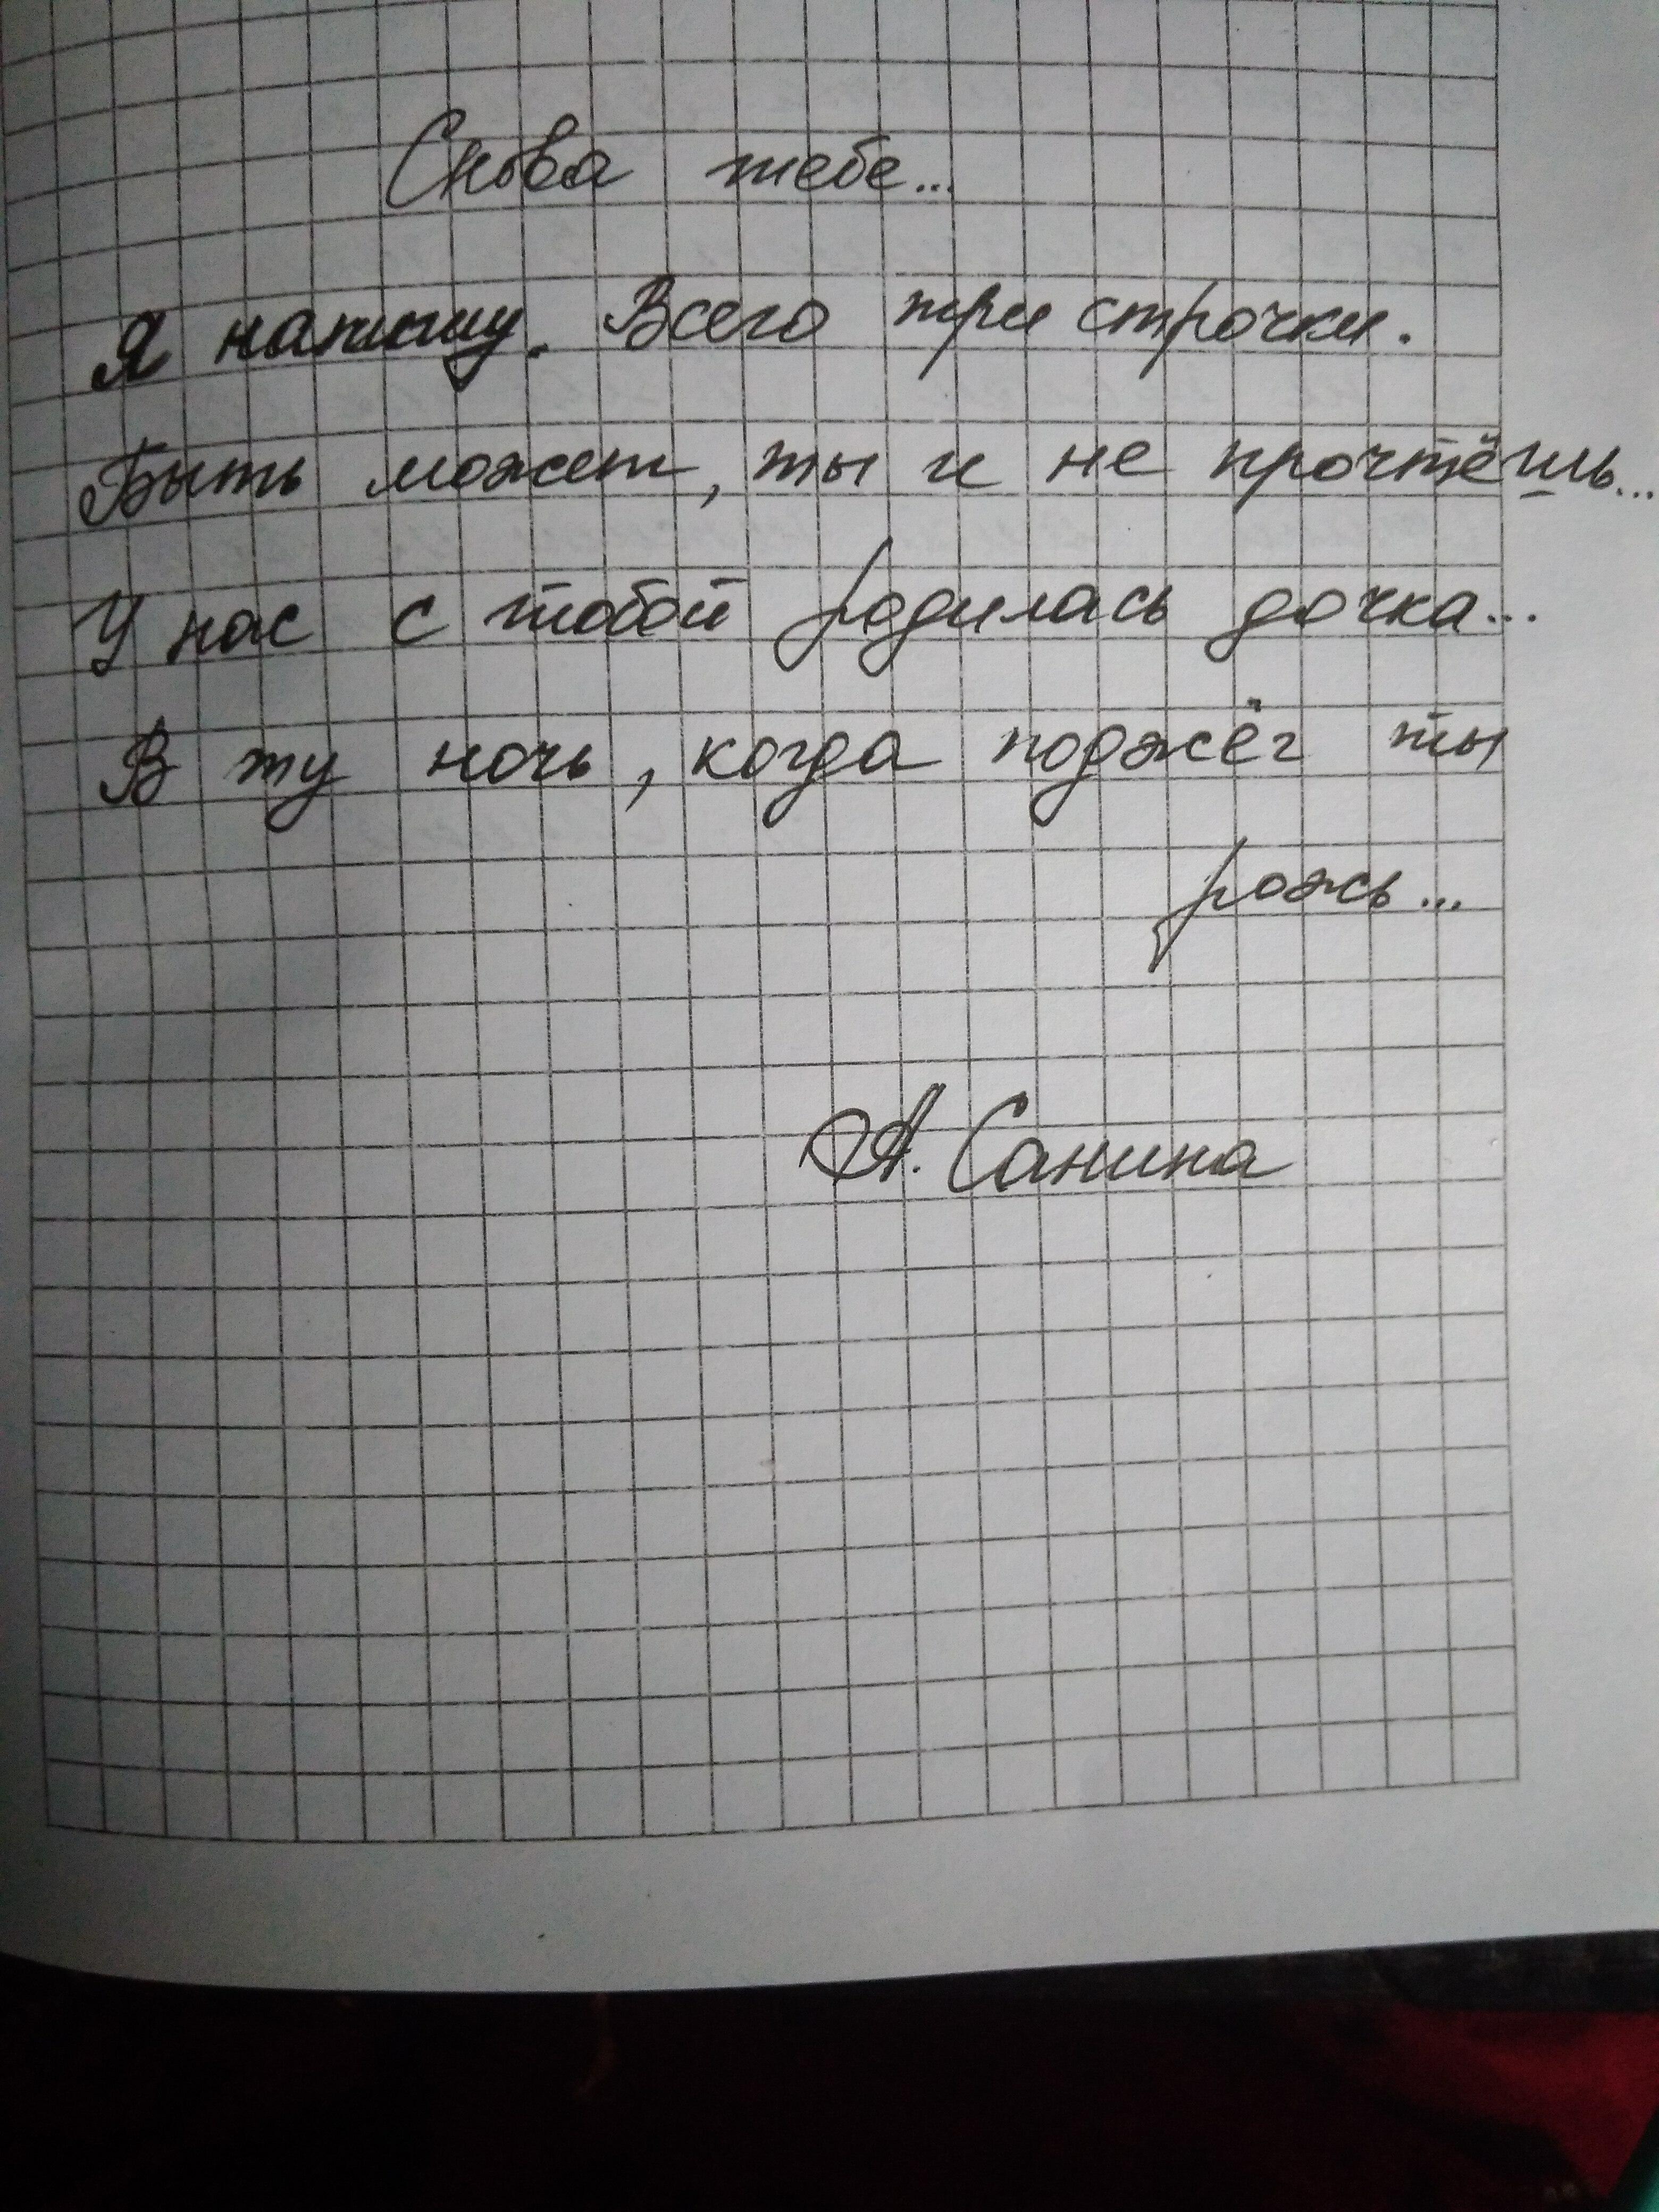 Снова тебе...
Я напишу. Всего три строчки.
Быть может, ты и не прочтёшь...
У нас с тобой родилась дочка...
В ту ночь, когда поджёг ты
рожь...
А. Санина